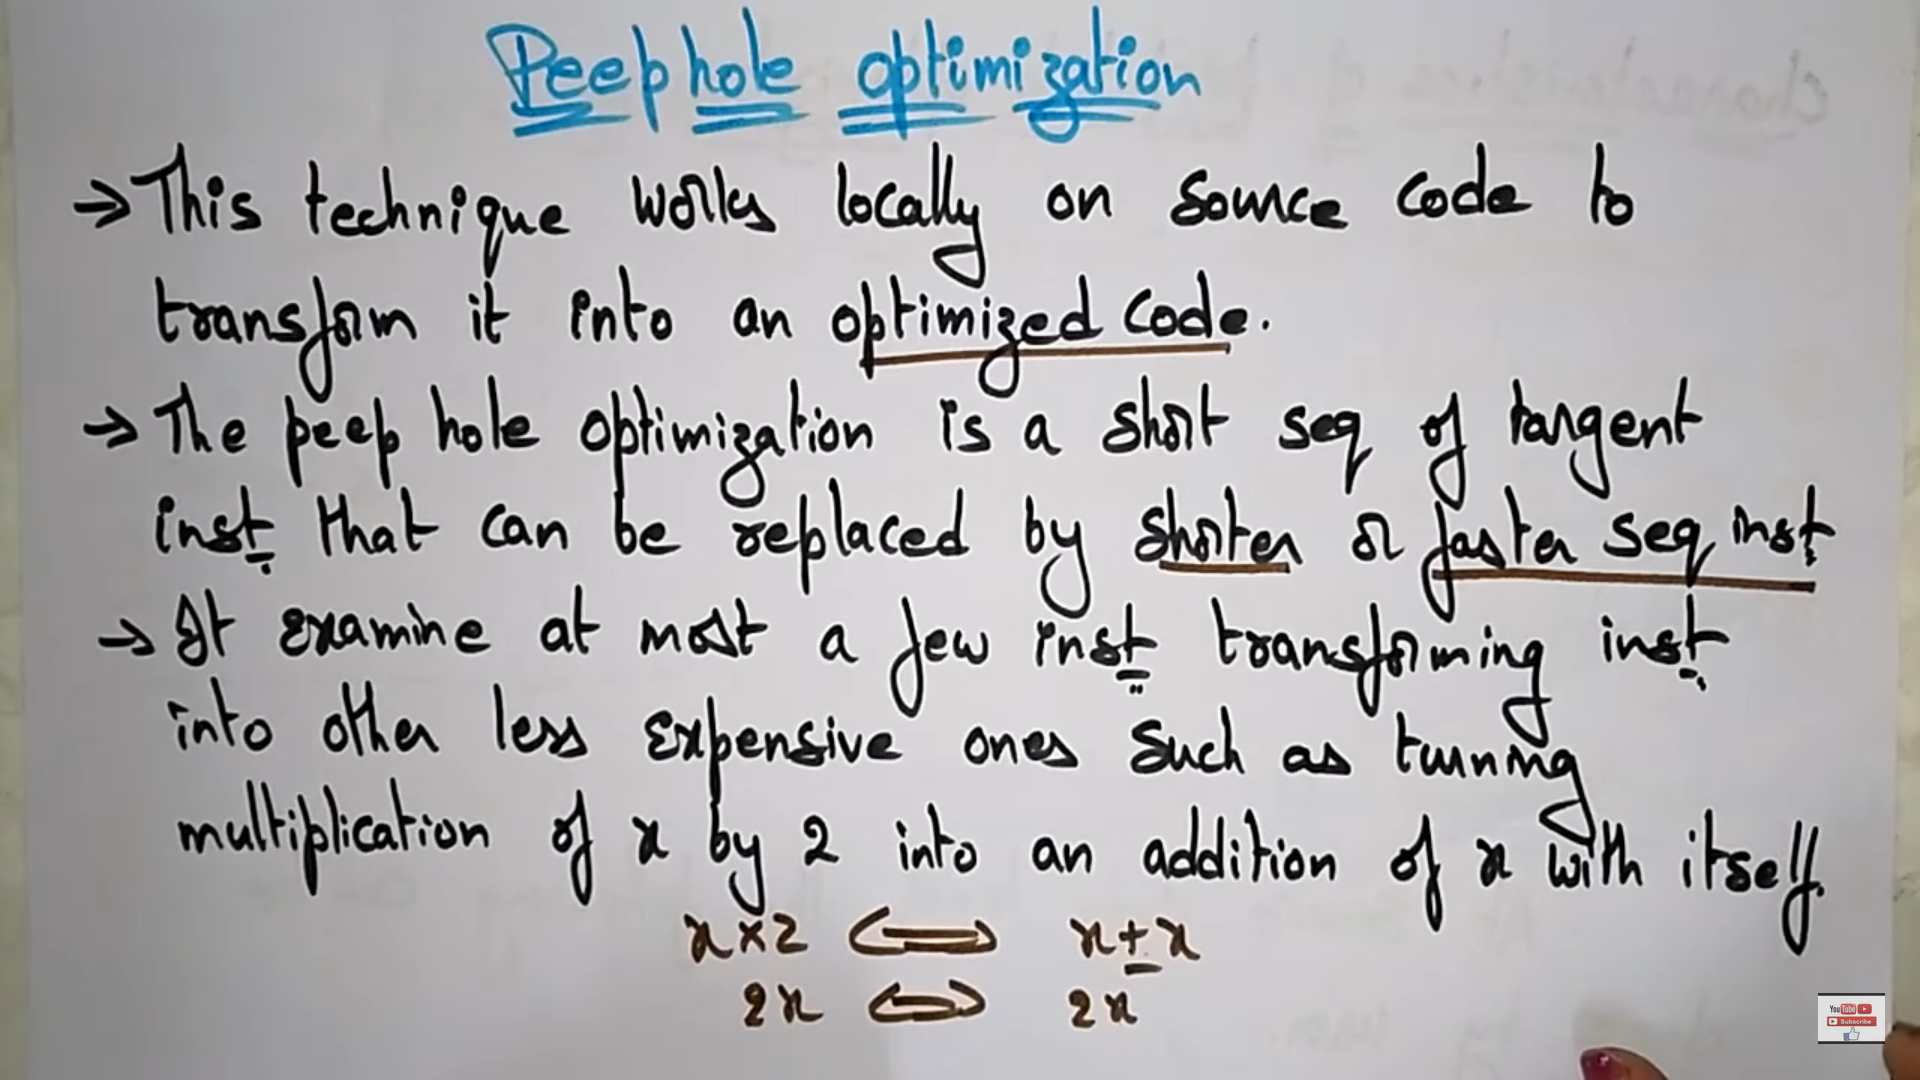 Peep hole optimization
→ This technique works locally on source code to
transform it into an optimized code.
→ The peep hole optimization is a short seq of tangent
inst that can be replaced by shorter or faster seq inst
→ It examine at most a few inst transforming inst
into other less expensive ones such as turning
multiplication of x by 2 into an addition of x with itself.
x×2 ⟺ x+x
2x ⟺ 2x
YouTube
Subscribe